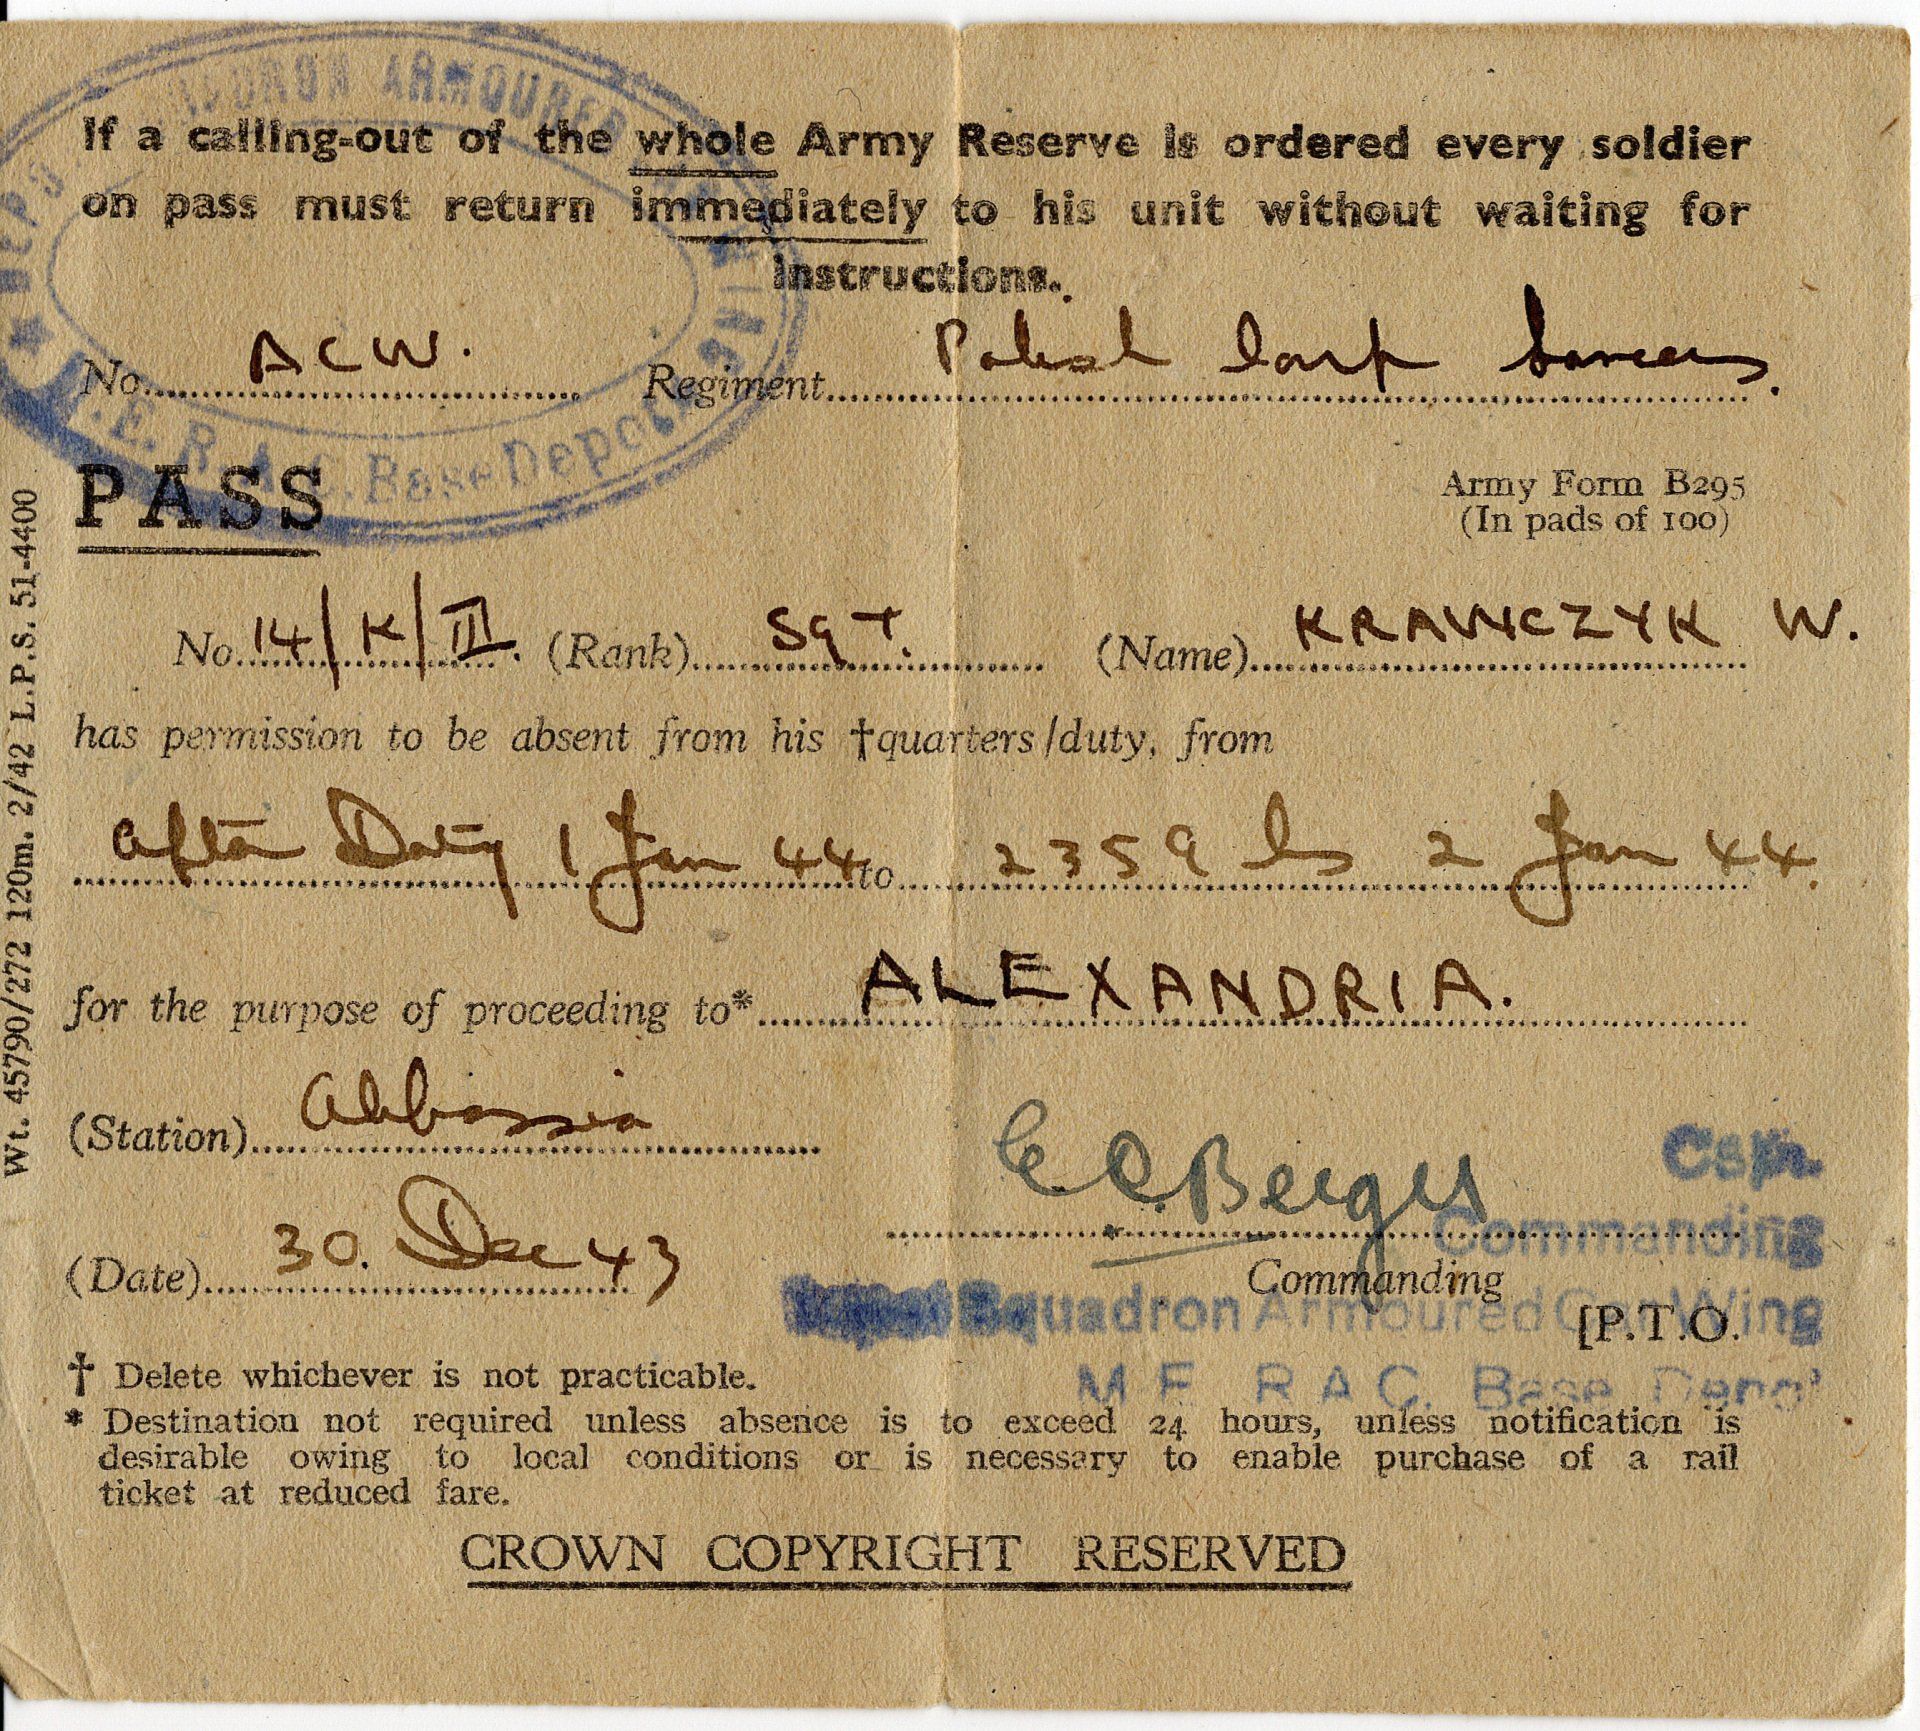 If a calling-out of the whole Army Reserve is ordered every soldier
on pass must return immediately to his unit without waiting for
instructions.
No. ACW. Regiment Polish
PASS
Army Form B295
(In pads of 100)
ARMOURED
M.E. R.A.C. Base Depot
No. 14/K/III. (Rank) Sgt. (Name) KRAWCZYK W.
has permission to be absent from his †quarters/duty, from
after Duty 1 Jan 44 to 2359 hs 2 Jan 44.
for the purpose of proceeding to* ALEXANDRIA.
(Station) Abbassia
(Date) 30. Dec 43
Commanding
Commanding
Squadron Armoured Car Wing
M.E. R.A.C. Base Depot
[P.T.O.
† Delete whichever is not practicable.
* Destination not required unless absence is to exceed 24 hours, unless notification is
desirable owing to local conditions or is necessary to enable purchase of a rail
ticket at reduced fare.
CROWN COPYRIGHT RESERVED
Wt. 45790/272 120m. 2/42 L.P.S. 51-4400